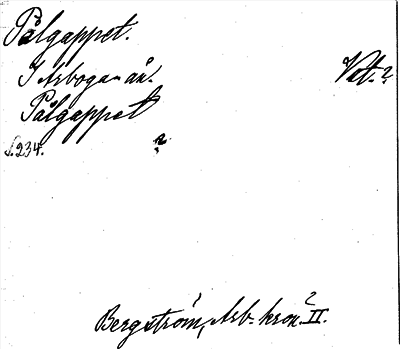 Pålgappet.
I Arboga-ån.
Vat.?
Pålgappet
S. 234.
?
Bergström, Arb. krön. II.